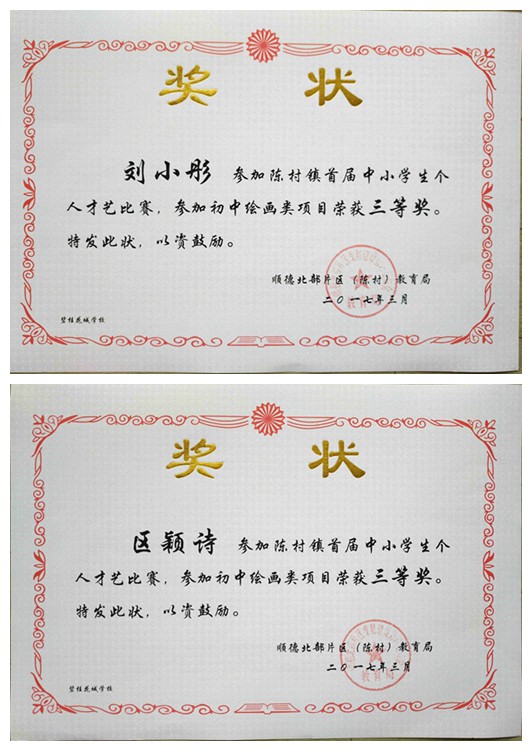 奖 状
刘小彤 参加陈村镇首届中小学生个
人才艺比赛，参加初中绘画类项目荣获三等奖。
特发此状，以资鼓励。
顺德北部片区（陈村）教育局
二〇一七年三月
碧桂花城学校
奖 状
区颖诗 参加陈村镇首届中小学生个
人才艺比赛，参加初中绘画类项目荣获三等奖。
特发此状，以资鼓励。
顺德北部片区（陈村）教育局
二〇一七年三月
碧桂花城学校